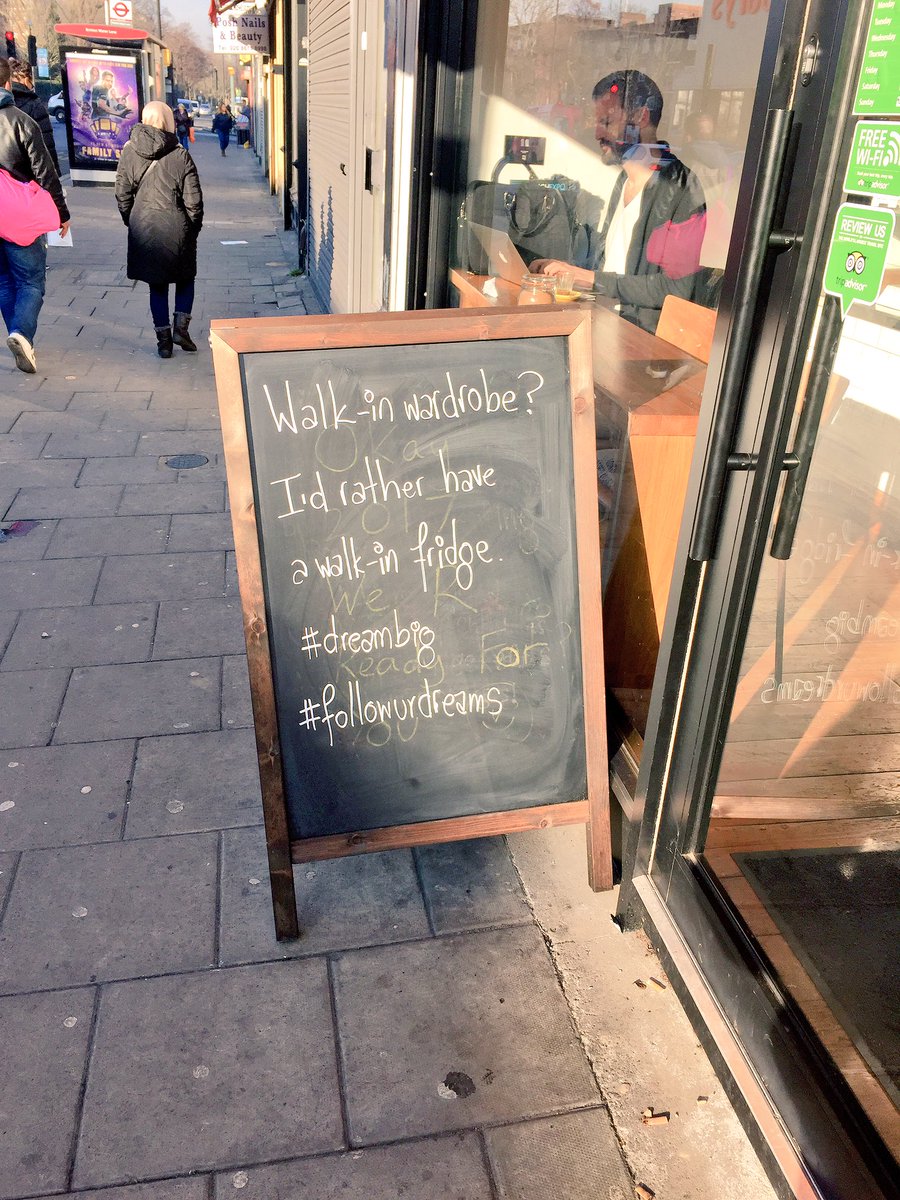 Posh Nails
& Beauty
FAMILY
Walk-in wardrobe?
I'd rather have
a walk-in fridge.
#dreambig
#followurdreams
Okay
2017
We
Ready For
Monday
Tuesday
Wednesday
Thursday
Friday
Saturday
Sunday
FREE
Wi-Fi
tripadvisor
REVIEW US
tripadvisor